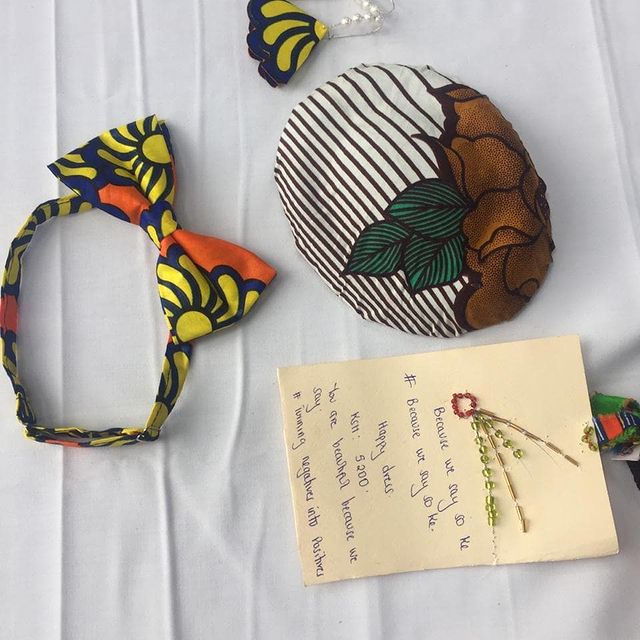 Because we say so Ke
# Because we say so Ke.
Happy dress
Ksh: 5200.
You are beautiful because we
say
# Turning negatives into Positives